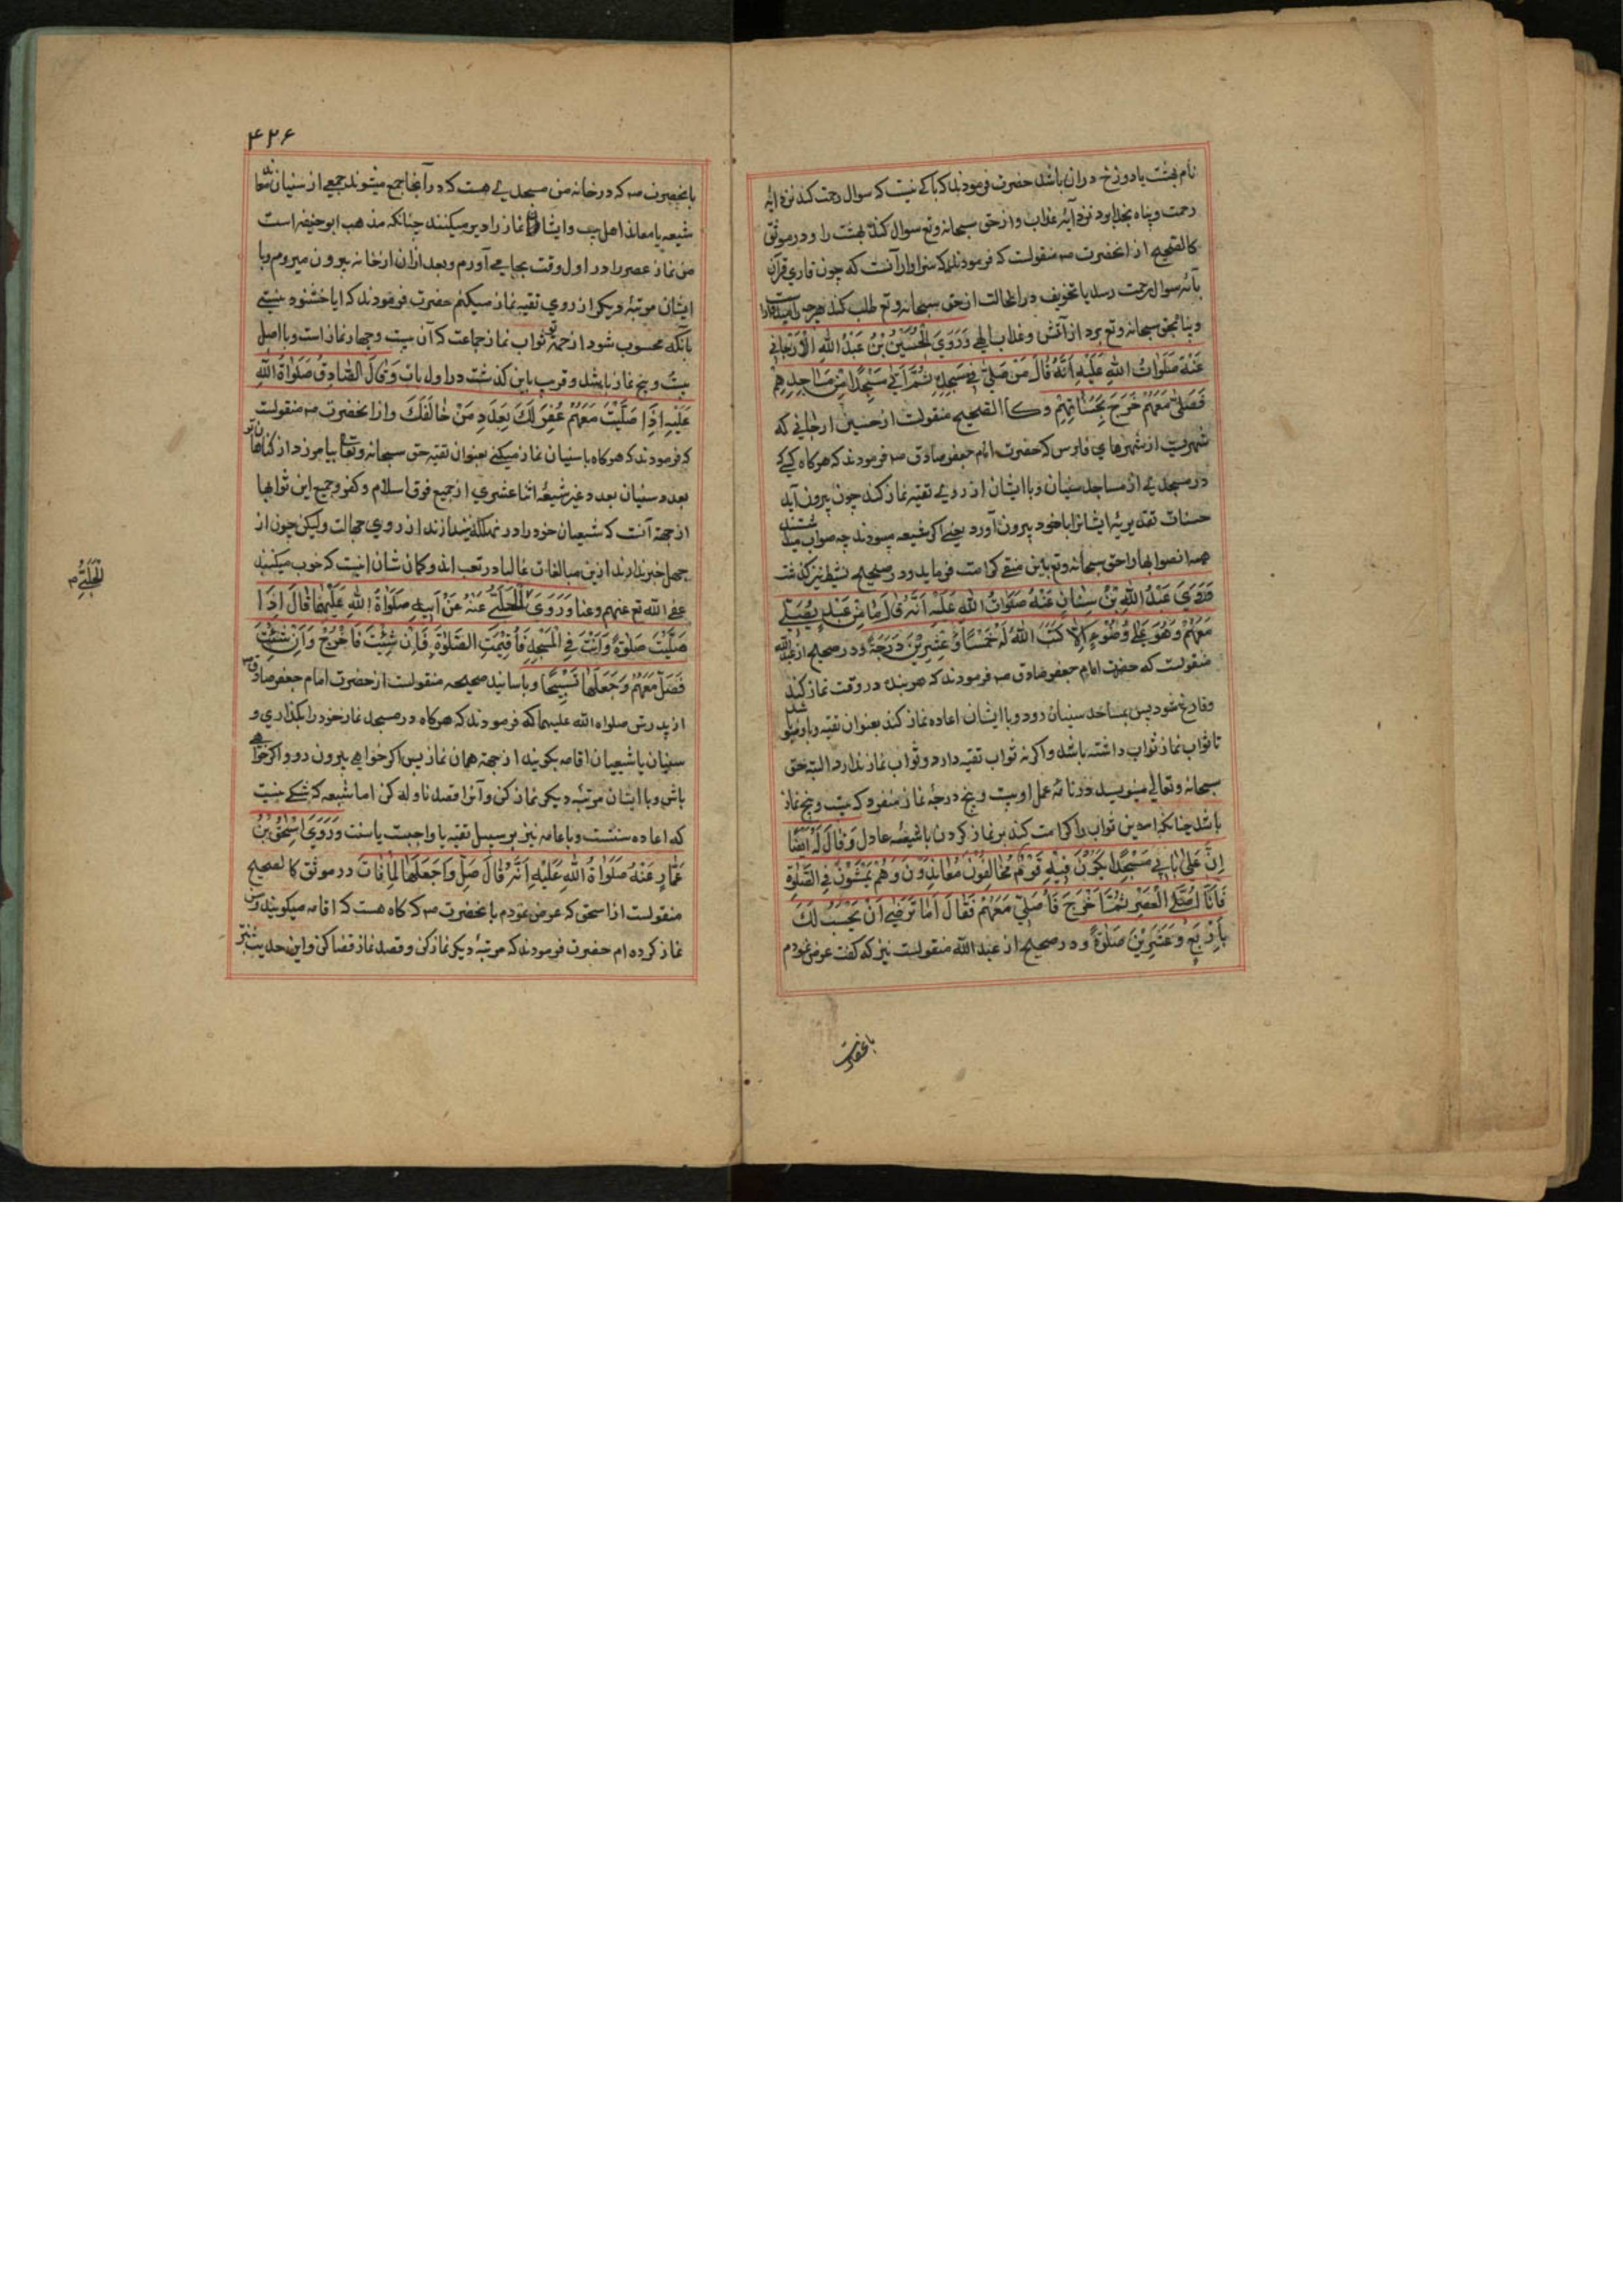 نام بهشت یا دوزخ در ان باشد حضرت فرمودند که باکی نیست که سوال رحمت کند نزد ایه
رحمت و پناه بخدا برد نزد آیه عذاب و از حق سبحانه وتع سوال کند بهشت را و در موثق
کالصحیح از انحضرت صه منقولست که فرمودند که سزاوار آنست که چون قاری قران
بآیه سوال رحمت رسد یا تخویف در انحالت از حق سبحانه وتع طلب کند
و پناه بحق سبحانه وتع برد از آتش و عذاب الهی وَرَوَي الْحُسَيْنُ بْنُ عَبْدِ اللهِ الْاَرَّجَانِي
عَنْهُ صَلَوَاتُ اللهِ عَلَيْهِ اَنَّهُ قَالَ مَنْ صَلّيٰ فِي مَسْجِدِهِ ثُمَّ اَتيٰ مَسْجِدًا مِنْ مَسَاجِدِهِمْ
فَصَلّيٰ مَعَهُمْ خَرَجَ بِحَسَنَاتِهِمْ و کالصحیح منقولست از حسین ارجانی که
شهریست از شهرهای فارس که حضرت امام جعفر صادق صه فرمودند که هرکاه کسی که
در مسجدی از مساجد سنیان و با ایشان از روی تقیه نماز کند چون بیرون آید
حسنات تقدیریهٔ ایشانرا با خود بیرون آورد یعنی اکر شیعه میبودند چه ثواب
همه انثوابها را حق سبحانه وتع باین متقی کرامت فرماید و در صحیح نشیط نیز کذشت
وَرَوَيٰ عَبْدُ اللهِ بْنُ سِنَانٍ عَنْهُ صَلَوَاتُ اللهِ عَلَيْهِ اَنَّهُ قَالَ مَا مِنْ عَبْدٍ يُصَلِّي
مَعَهُمْ وَهُوَ عَلٰي وُضُوءٍ اِلَّا كَتَبَ اللهُ لَهُ خَمْسًا وَعِشْرِيْنَ دَرَجَةً و در صحیح از عبدالله
منقولست که حضرت امام جعفر صادق صه فرمودند که هر بنده در وقت نماز کند
و فارغ شود پس بمساجد سنیان رود و با ایشان اعاده نماز کند بعنوان تقیه و با وضو
تا ثواب نماز ثواب داشته باشد و اکر نه ثواب تقیه دارد و ثواب نماز ندارد البته حق
سبحانه و تعالی مینویسد در نامهٔ عمل او بیست و پنج درجهٔ نماز منفرد که بیست و پنج نماز
باشد چنانکه این ثواب را کرامت کند بر نماز کردن با شیعهٔ عادل وَقَالَ لَهُ اَيْضًا
اِنَّ عَلٰي بَابِي مَسْجِدًا يَكُوْنُ فِيْهِ قَوْمٌ مُخَالِفُوْنَ مُعَانِدُوْنَ وَهُمْ يُمْسُوْنَ فِي الصَّلوٰةِ
فَاَنَا اُصَلِّي الْعَصْرَ ثُمَّ اَخْرُجُ فَاُصَلِّيْ مَعَهُمْ فَقَالَ اَمَا تَرْضٰي اَنْ يُحْسَبَ لَكَ
بِاَرْبَعٍ وَعِشْرِيْنَ صَلوٰةً و در صحیح از عبد الله منقولست نیز که کفت عرض نمودم
بانحضرت
۴۲۶
بانحضرت صه که در خانه من مسجدی هست که در آنجا جمع میشوند جمعی از سنیان
شیعه یا معاند اهل بیت و ایشان نماز را دیر میکنند چنانکه مذهب ابوحنیفه است
من نماز عصر را در اول وقت بجا می آورم و بعد از ان از خانه بیرون میروم و با
ایشان مرتبهٔ دیکر از روی تقیه نماز میکنم حضرت فرمودند که ایا خشنود نیستی
بآنکه محسوب شود از جهة تو ثواب نماز جماعت که آن بیست و چهار نماز است و با اصل
بیست و پنج نماز باشد و قریب باین کذشت در اول باب وَقَالَ الصَّادِقُ صَلَوَاةُ اللهِ
عَلَيْهِ اِذَا صَلَّيْتَ مَعَهُمْ غُفِرَ لَكَ بِعَدَدِ مَنْ خَالَفَكَ و از انحضرت صه منقولست
که فرمودند که هرکاه با سنیان نماز میکنی بعنوان تقیه حق سبحانه وتعا بیامرزد از کناهان تو
بعدد سنیان بعدد غیر شیعهٔ اثنا عشری از جمیع فرق اسلام و کفر و جمیع این ثوابها
از جهة آنست که شیعیان خود را در تهلکه نیندازند از روی جهالت ولیکن چون از
جهل خبر ندارند ازین مبالغات غالبا در تعب اند و کمان شان اینست که خوب میکنند
عفی الله تع عنهم و عنا وَرَوَيَ الْحَلَبِيُّ عَنْهُ عَنْ اَبِيْهِ صَلَوَاةُ اللهِ عَلَيْهِمَا قَالَ اِذَا
صَلَّيْتَ صَلوٰةً وَاَنْتَ فِي الْمَسْجِدِ فَاُقِيْمَتِ الصَّلوٰةُ فَاِنْ شِئْتَ فَاخْرُجْ وَاِنْ شِئْتَ
فَصَلِّ مَعَهُمْ وَجَعَلَهَا تَسْبِيْحًا و باسانید صحیحه منقولست از حضرت امام جعفر صادق صه
از پدرش صلواه الله علیهما که فرمودند که هرکاه در مسجد نماز خود را بکذاری و
سنیان یا شیعیان اقامه بکویند از جهة همان نماز پس اکر خواهی بیرون رو و اکر خواهی
باش و با ایشان مرتبهٔ دیکر نماز کن و آنرا قصد نافله کن اما شیعه که شکی نیست
که اعاده سنتست و با عامه نیز بر سبیل تقیه یا واجبست یا سنت وَرَوَيَ اِسْحٰقُ بْنُ
عَمَّارٍ عَنْهُ صَلَوَاةُ اللهِ عَلَيْهِ اَنَّهُ قَالَ صَلِّ وَاجْعَلْهَا لِمَا فَاتَ در موثق کالصحیح
منقولست از اسحق که عرض نمودم بانحضرت صه که کاه هست که اقامه میکویند و من
نماز کرده ام حضرت فرمودند که مرتبهٔ دیکر نماز کن و قصد نماز قضا کن و این حدیث نیز
الْحَلَبِيُّ